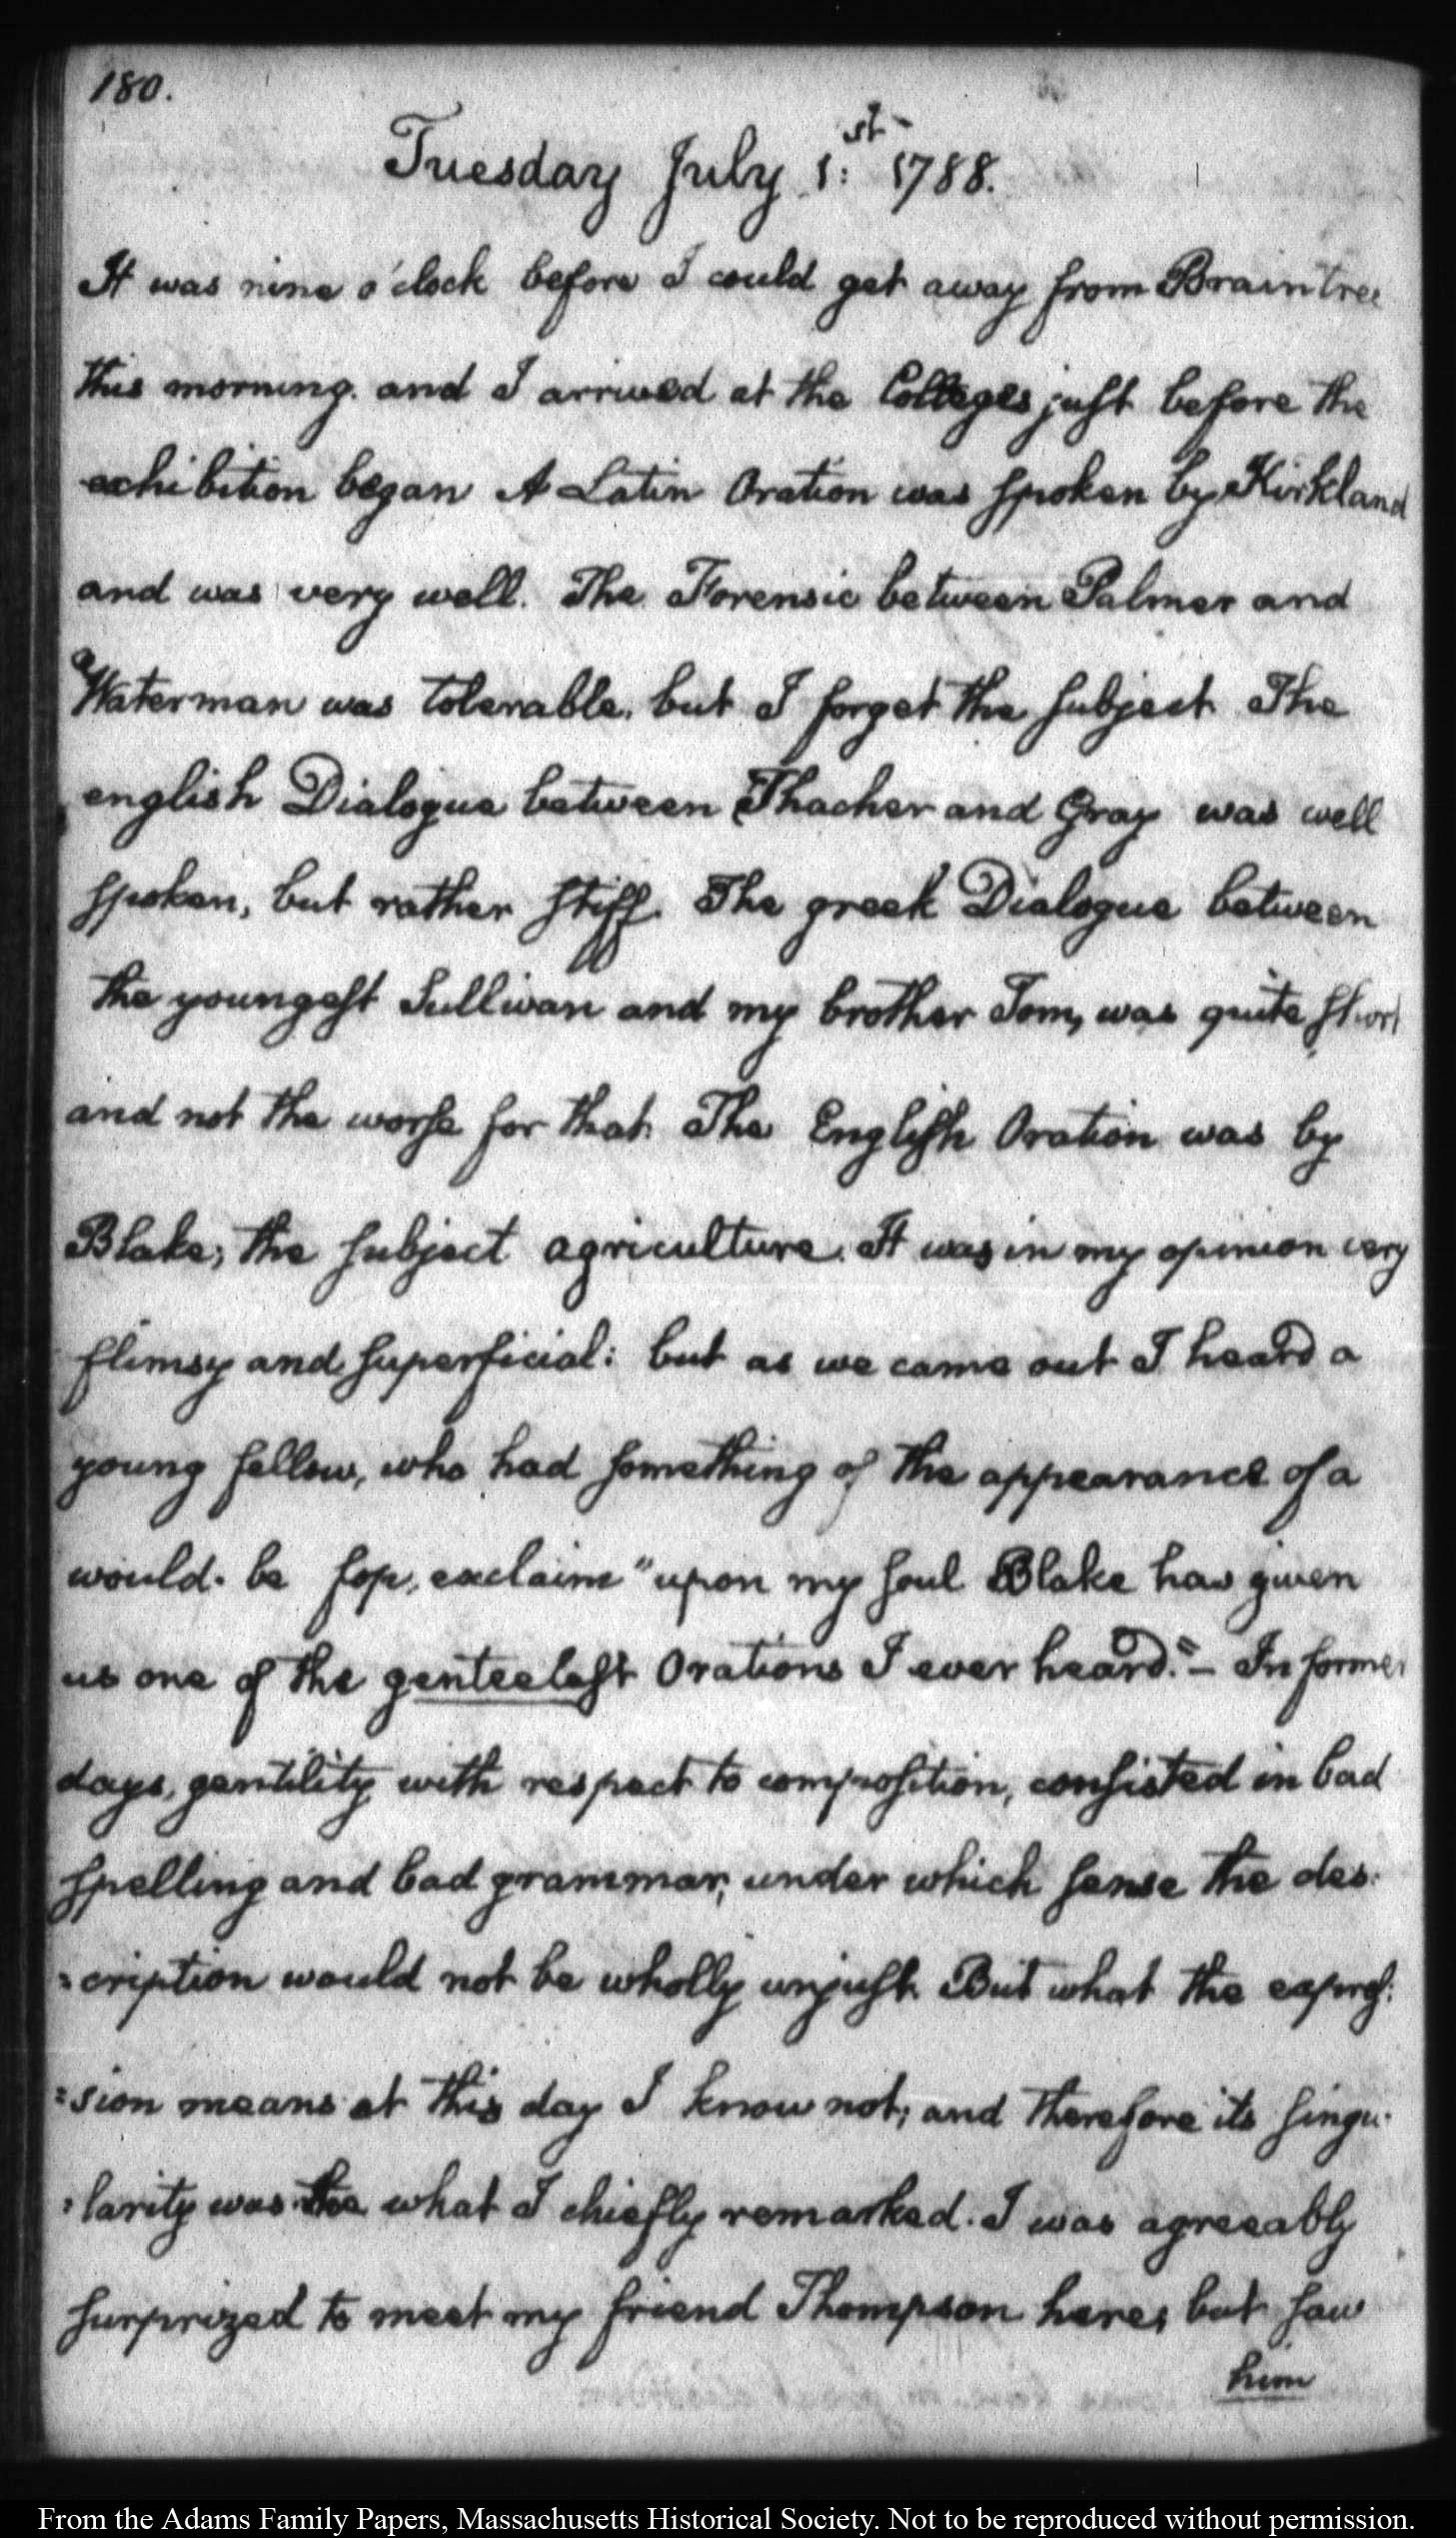 180.
Tuesday July 1:st 1788.
It was nine o'clock before I could get away from Braintree
this morning. and I arrived at the Colleges just before the
exhibition began A Latin Oration was spoken by Kirkland
and was very well. The Forensic between Palmer and
Waterman was tolerable. but I forget the subject The
english Dialogue between Thacher and Gray was well
spoken, but rather stiff. The greek Dialogue between
the youngest Sullivan and my brother Tom, was quite short
and not the worse for that. The English Oration was by
Blake; the subject agriculture. It was in my opinion very
flimsy and superficial: but as we came out I heard a
young fellow, who had something of the appearance of a
would-be fop, exclaim "upon my soul Blake has given
us one of the genteelest Orations I ever heard." – In former
days, gentility with respect to composition, consisted in bad
spelling and bad grammar; under which sense the des:
:cription would not be wholly unjust. But what the expres:
:sion means at this day I know not; and therefore its singu:
:larity was what I chiefly remarked. I was agreeably
surprized to meet my friend Thompson here; but saw
him
From the Adams Family Papers, Massachusetts Historical Society. Not to be reproduced without permission.